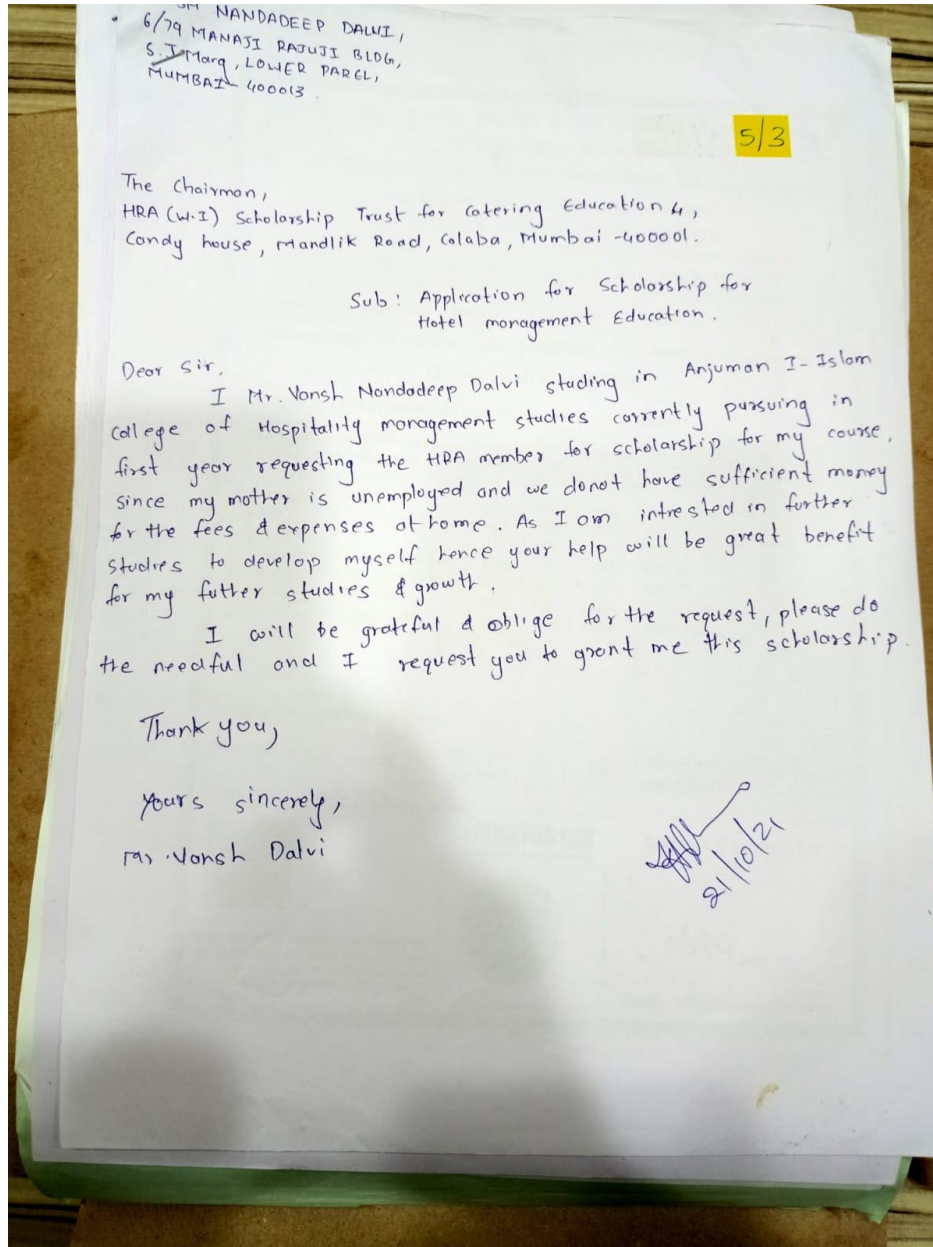 NANDADEEP DALVI,
6/79 MANAJI RAJUJI BLDG,
S.J Marg, LOWER PAREL,
MUMBAI - 400013.
5/3
The Chairman,
HRA (W.I) Scholarship Trust for Catering Education 4,
Candy house, Mandlik Road, Colaba, Mumbai -400001.
Sub : Application for Scholarship for
Hotel management Education.
Dear Sir,
I Mr. Vansh Nandadeep Dalvi studing in Anjuman I- Islam
College of Hospitality management studies currently pursuing in
first year requesting the HRA member for scholarship for my course,
since my mother is unemployed and we donot have sufficient money
for the fees & expenses at home. As I am intrested in further
studies to develop myself hence your help will be great benefit
for my futher studies & growth.
I will be grateful & oblige for the request, please do
the needful and I request you to grant me this scholarship.
Thank you,
Yours sincerely,
Mr. Vansh Dalvi
21/10/21